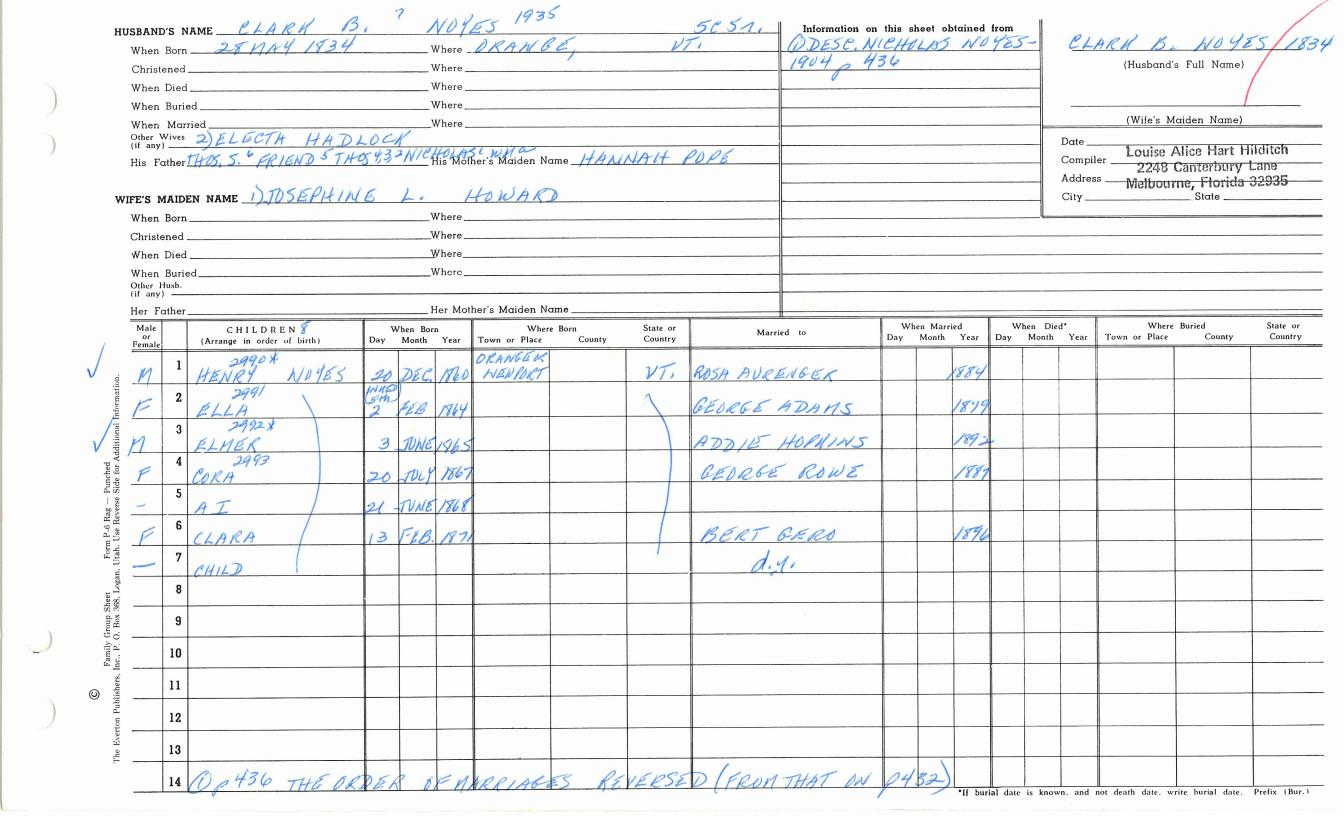 HUSBAND'S NAME CLARK B. ? NOYES 1935 5C5r.
When Born 28 MAY 1834 Where ORANGE, VT.
Christened Where
When Died Where
When Buried Where
When Married Where
Other Wives (if any) 2) ELECTA HADLOCK
His Father THOS. S.6 FRIEND5 THOS4,3 2NICHOLAS1 WMa His Mother's Maiden Name HANNAH POPE
WIFE'S MAIDEN NAME 1) JOSEPHINE L. HOWARD
When Born Where
Christened Where
When Died Where
When Buried Where
Other Husb. (if any)
Her Father Her Mother's Maiden Name
Information on this sheet obtained from
① DESC. NICHOLAS NOYES-
1904 p 436
CLARK B. NOYES 1834
(Husband's Full Name)
(Wife's Maiden Name)
Date
Compiler Louise Alice Hart Hilditch
Address 2248 Canterbury Lane
Melbourne, Florida 32935
City State
Male or Female CHILDREN 8 (Arrange in order of birth) When Born Day Month Year Where Born Town or Place County State or Country Married to When Married Day Month Year When Died* Day Month Year Where Buried Town or Place County State or Country
2990*
M 1 HENRY NOYES 20 DEC. 1860 ORANGER NEWPORT VT. ROSA AVRENGER 1884
2991
F 2 ELLA 2 FEB 1864 GEORGE ADAMS 1879
2992*
M 3 ELMER 3 JUNE 1965 ADDIE HOPKINS 1892
2993
F 4 CORA 20 JULY 1867 GEORGE ROWE 1887
- 5 A I 21 JUNE 1868
F 6 CLARA 13 FEB. 1871 BERT GERO 1896
— 7 CHILD d.y.
8
9
10
11
12
13
14 ① p 436 THE ORDER OF MARRIAGES REVERSED (FROM THAT ON p432)
*If burial date is known, and not death date, write burial date. Prefix (Bur.)
Family Group Sheet Form P-6 Rag — Punched
© The Everton Publishers, Inc., P. O. Box 368, Logan, Utah. Use Reverse Side for Additional Information.